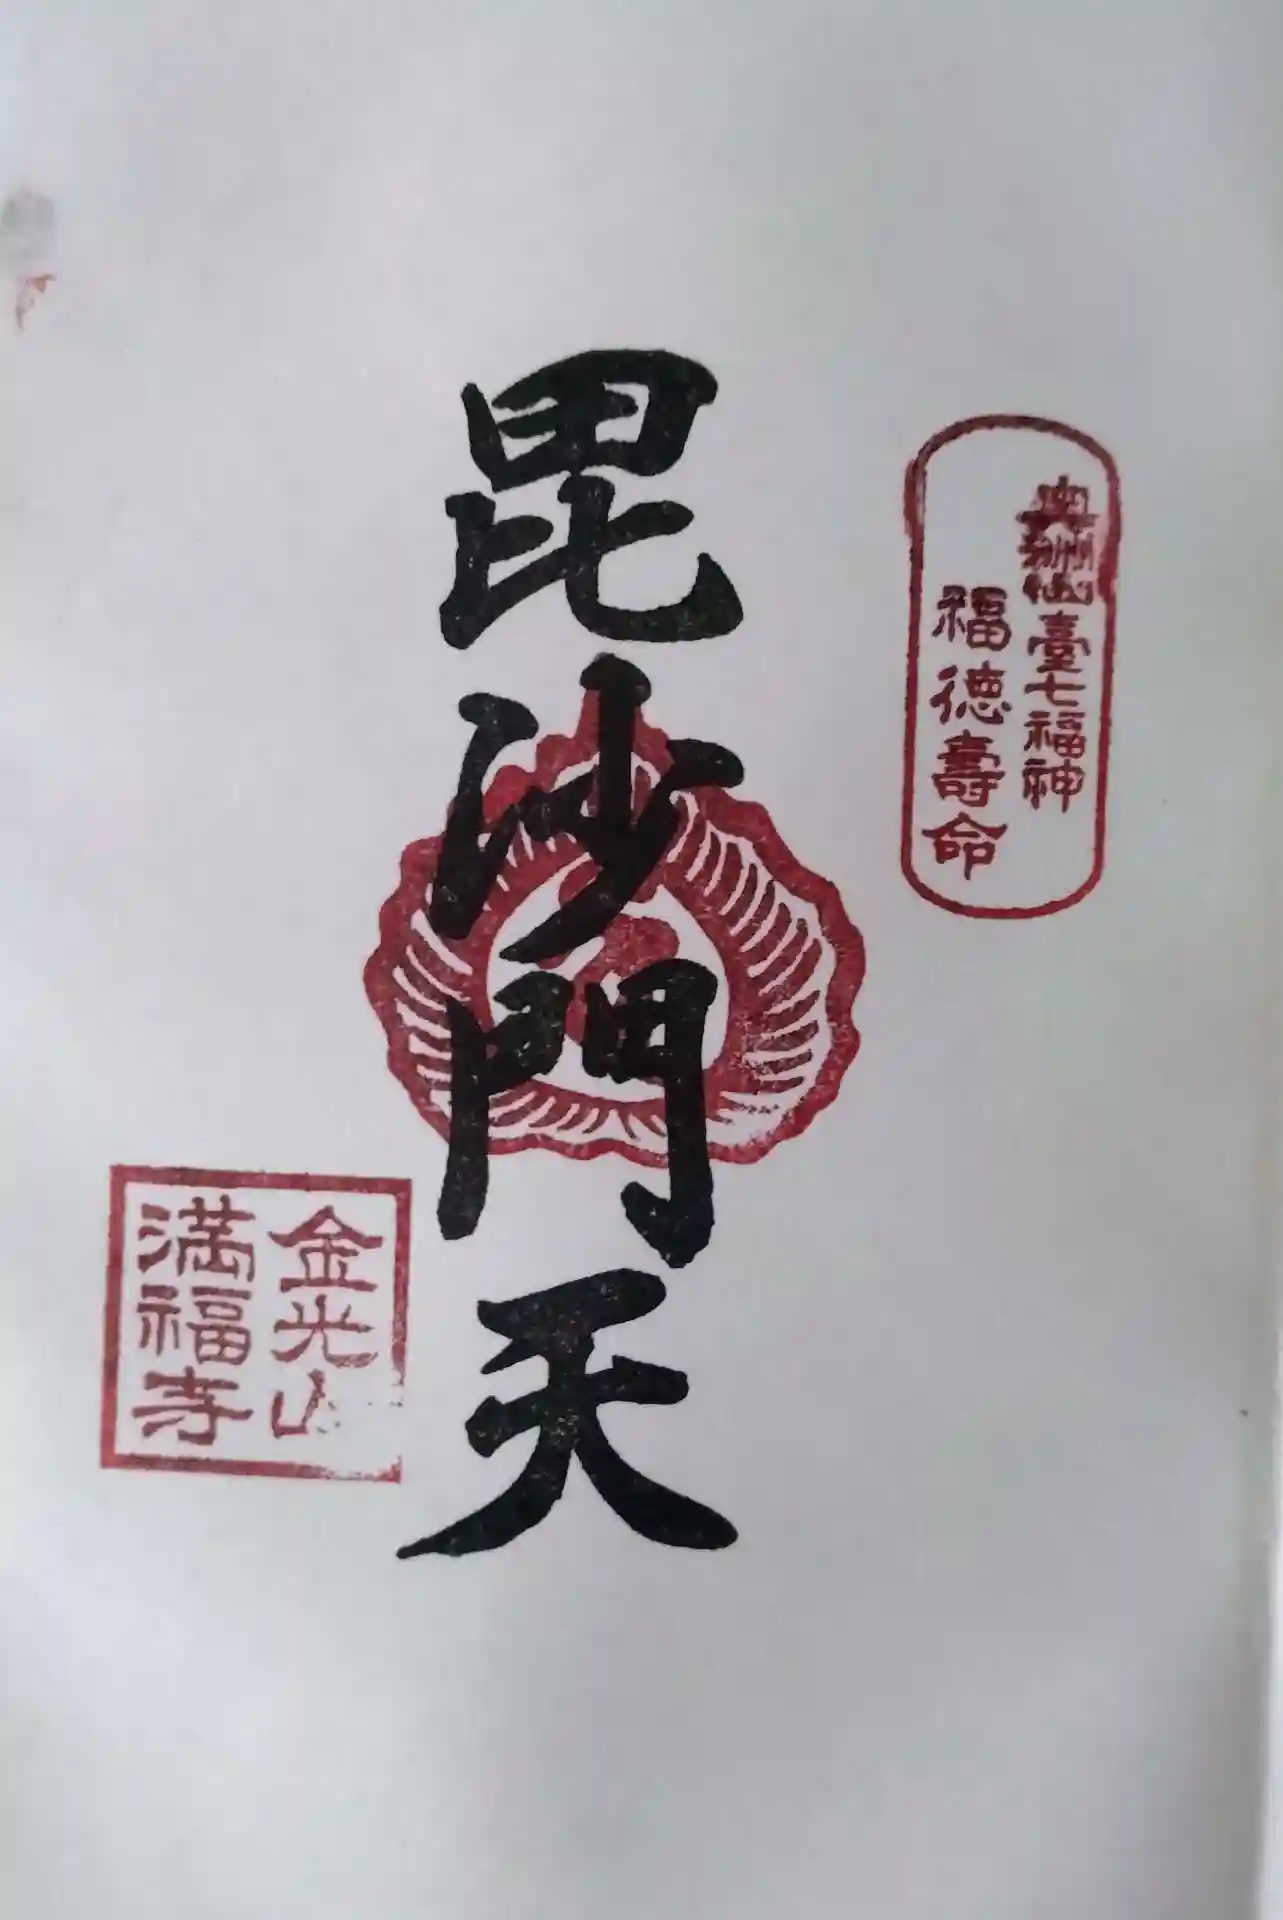 奥州仙臺七福神
福徳壽命
毘沙門天
金光山
満福寺